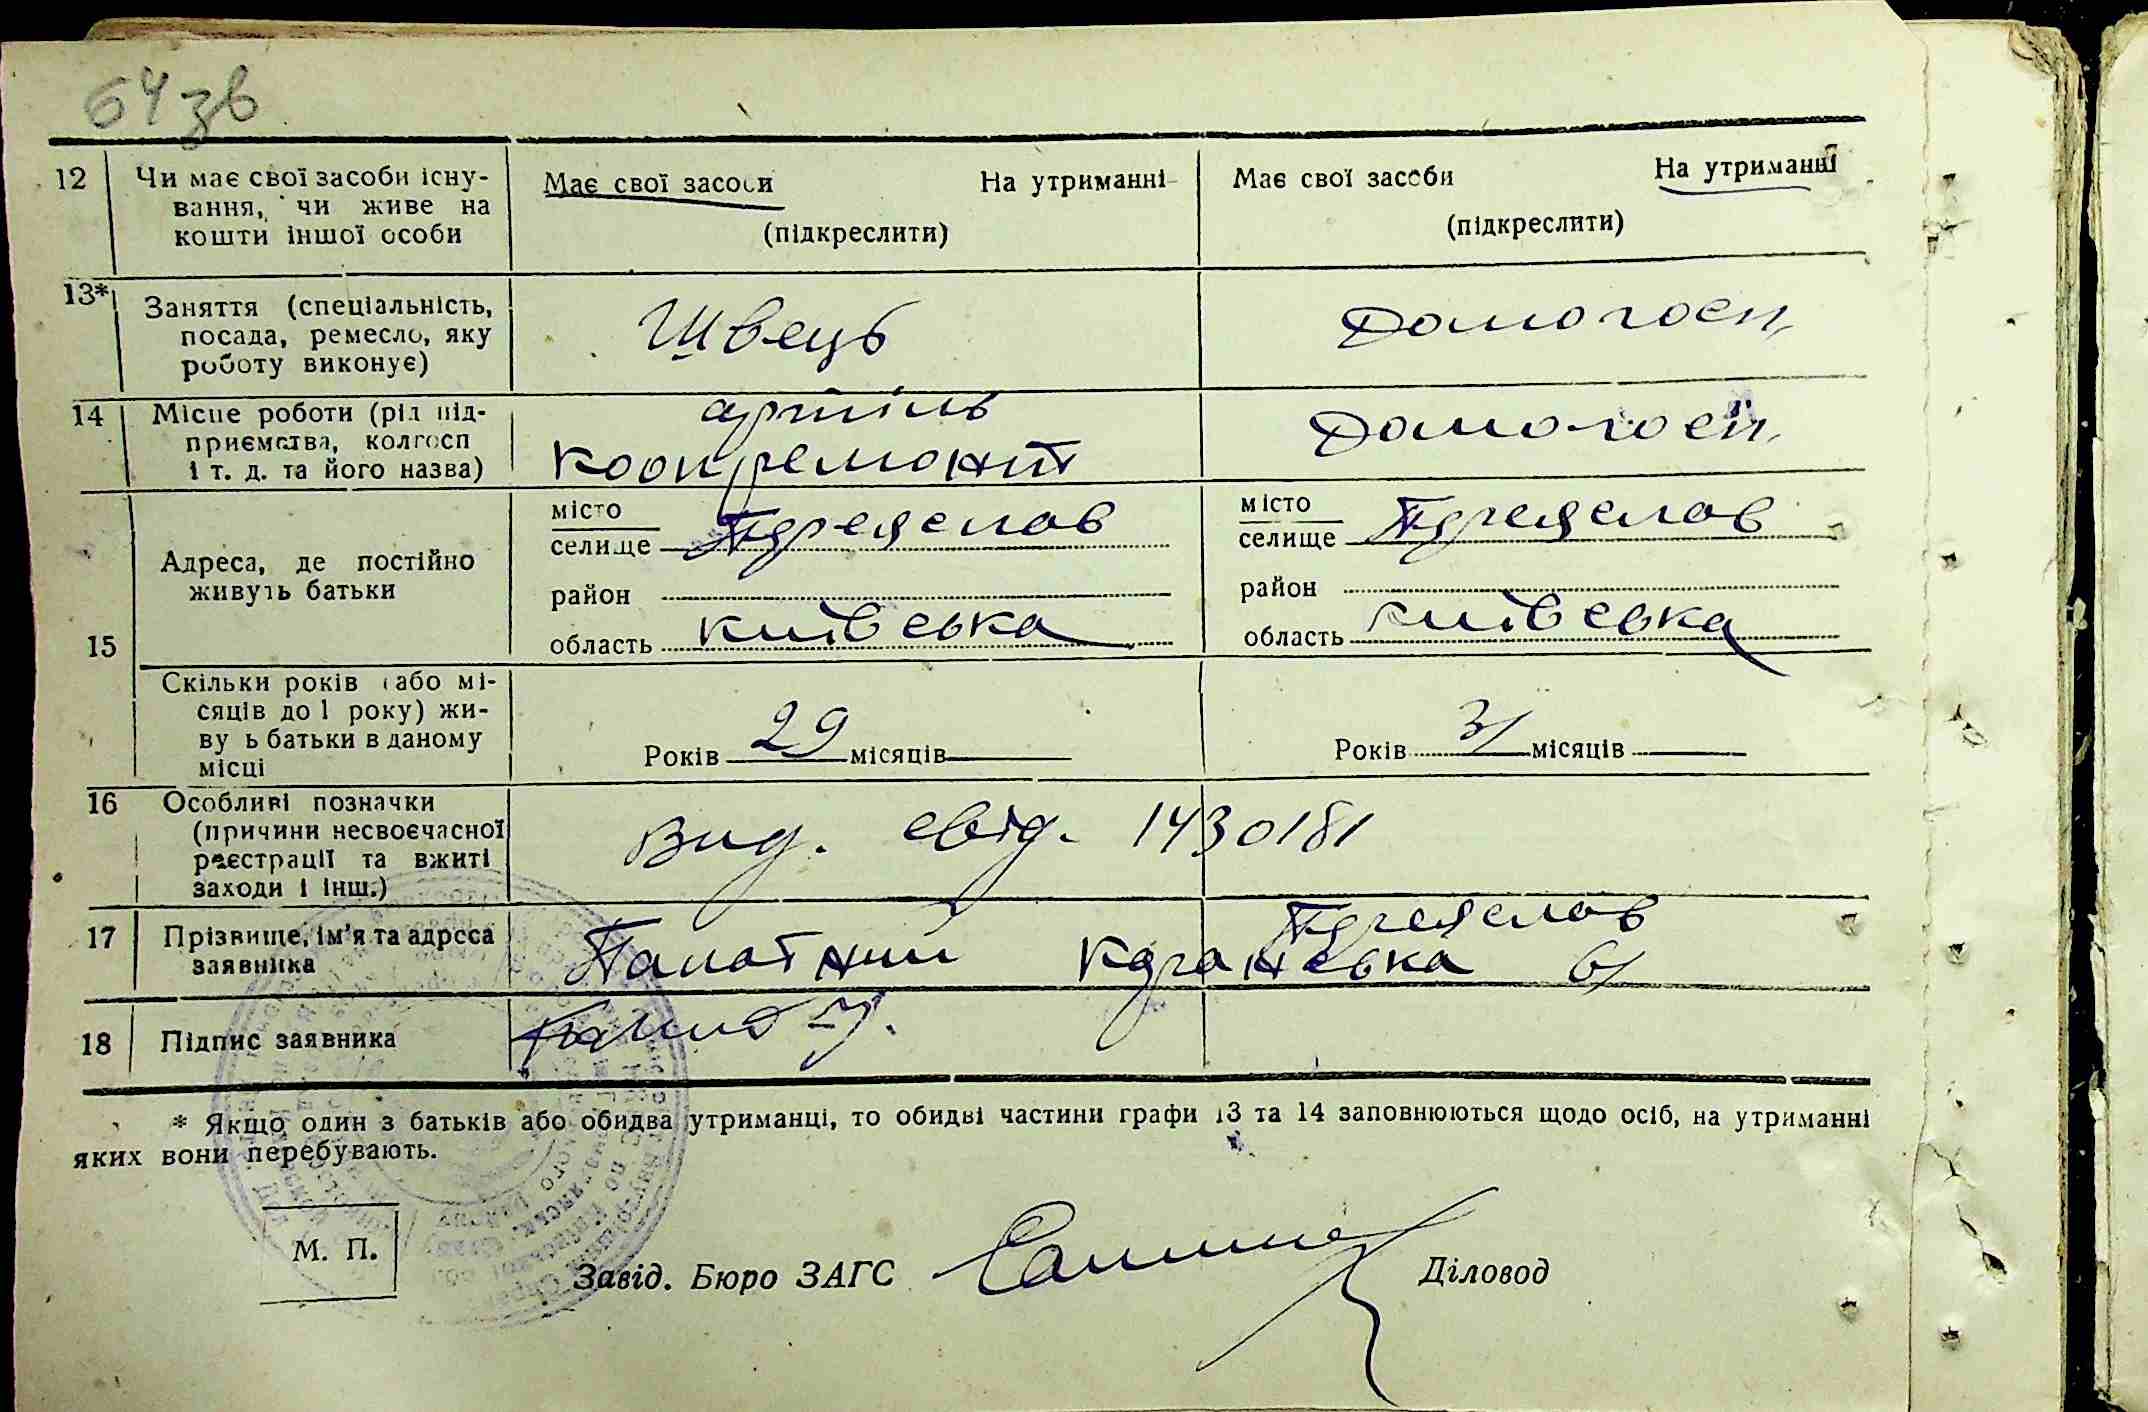 64зв
12 Чи має свої засоби існу-
вання, чи живе на
кошти іншої особи
Має свої засоби На утриманні
(підкреслити)
Має свої засоби На утриманні
(підкреслити)
13* Заняття (спеціальність,
посада, ремесло, яку
роботу виконує)
Швець
Домогосп.
14 Місце роботи (рід під-
приємства, колгосп
і т. д. та його назва)
артіль
Коопремонт
Домогосп.
15
Адреса, де постійно
живуть батьки
місто
селище Переяслав
район
область Київська
місто
селище Переяслав
район
область Київська
Скільки років (або мі-
сяців до 1 року) жи-
вуть батьки в даному
місці
Років 29 місяців
Років 31 місяців
16 Особливі позначки
(причини несвоєчасної
реєстрації та вжиті
заходи і інш.)
Вид. свід. 1430181
17 Прізвище, ім'я та адреса
заявника
Переяслав
18 Підпис заявника
* Якщо один з батьків або обидва утриманці, то обидві частини графи 13 та 14 заповнюються щодо осіб, на утриманні
яких вони перебувають.
М. П.
Завід. Бюро ЗАГС
Діловод